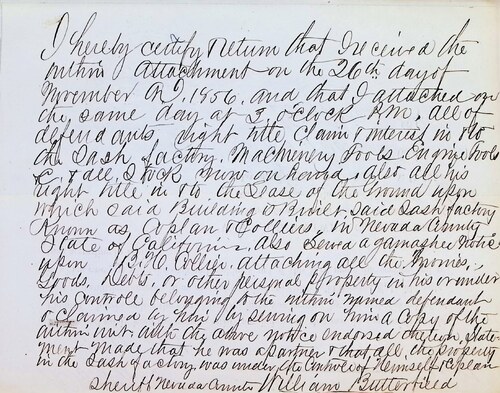 I hereby certify & return that I received the
within Attachment on the 26th day of
November A.D. 1856. and that I attached on
the same day at 3. oclock P.M. all of
defendants right title Claim & interest in & to
the Sash factory. Machinery Tools Engine Tools
& all Stock now on hand. also all his
right title in & to the Lease of the Ground upon
which said Building is Built. Said Sash factory
Known as Coplan & Colliers, in Nevada County
State of California. Also Served a garnashee Notice
upon Collier. attaching all the Monies,
Goods, Debts, or other personal property in his or under
his Controle belonging to the within named defendant
& Claimed by him by serving on him a Copy of the
within writ with the above notice endorsed thereon State-
ment made that he was a partner & that all the property
in the Sash factory was under the Controle of Himself & Coplan
Sheriff Nevada County William Butterfield